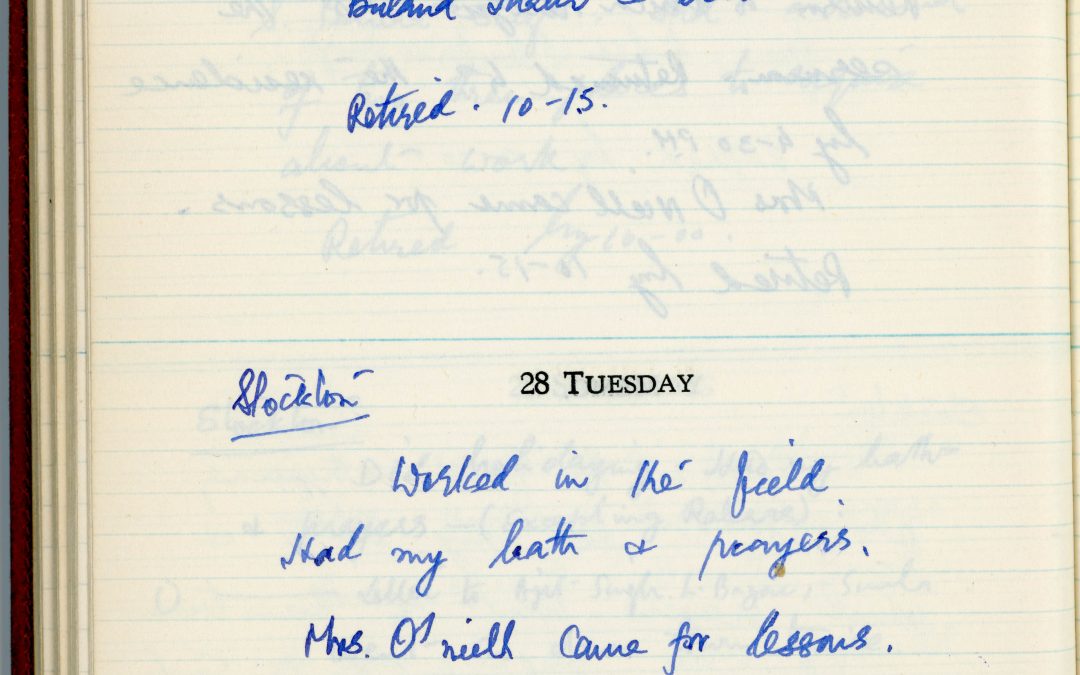 Retired. 10-15.
28 TUESDAY
Stockton
Worked in the field.
Had my bath & prayers.
Mrs. O'nielh Came for lessons.